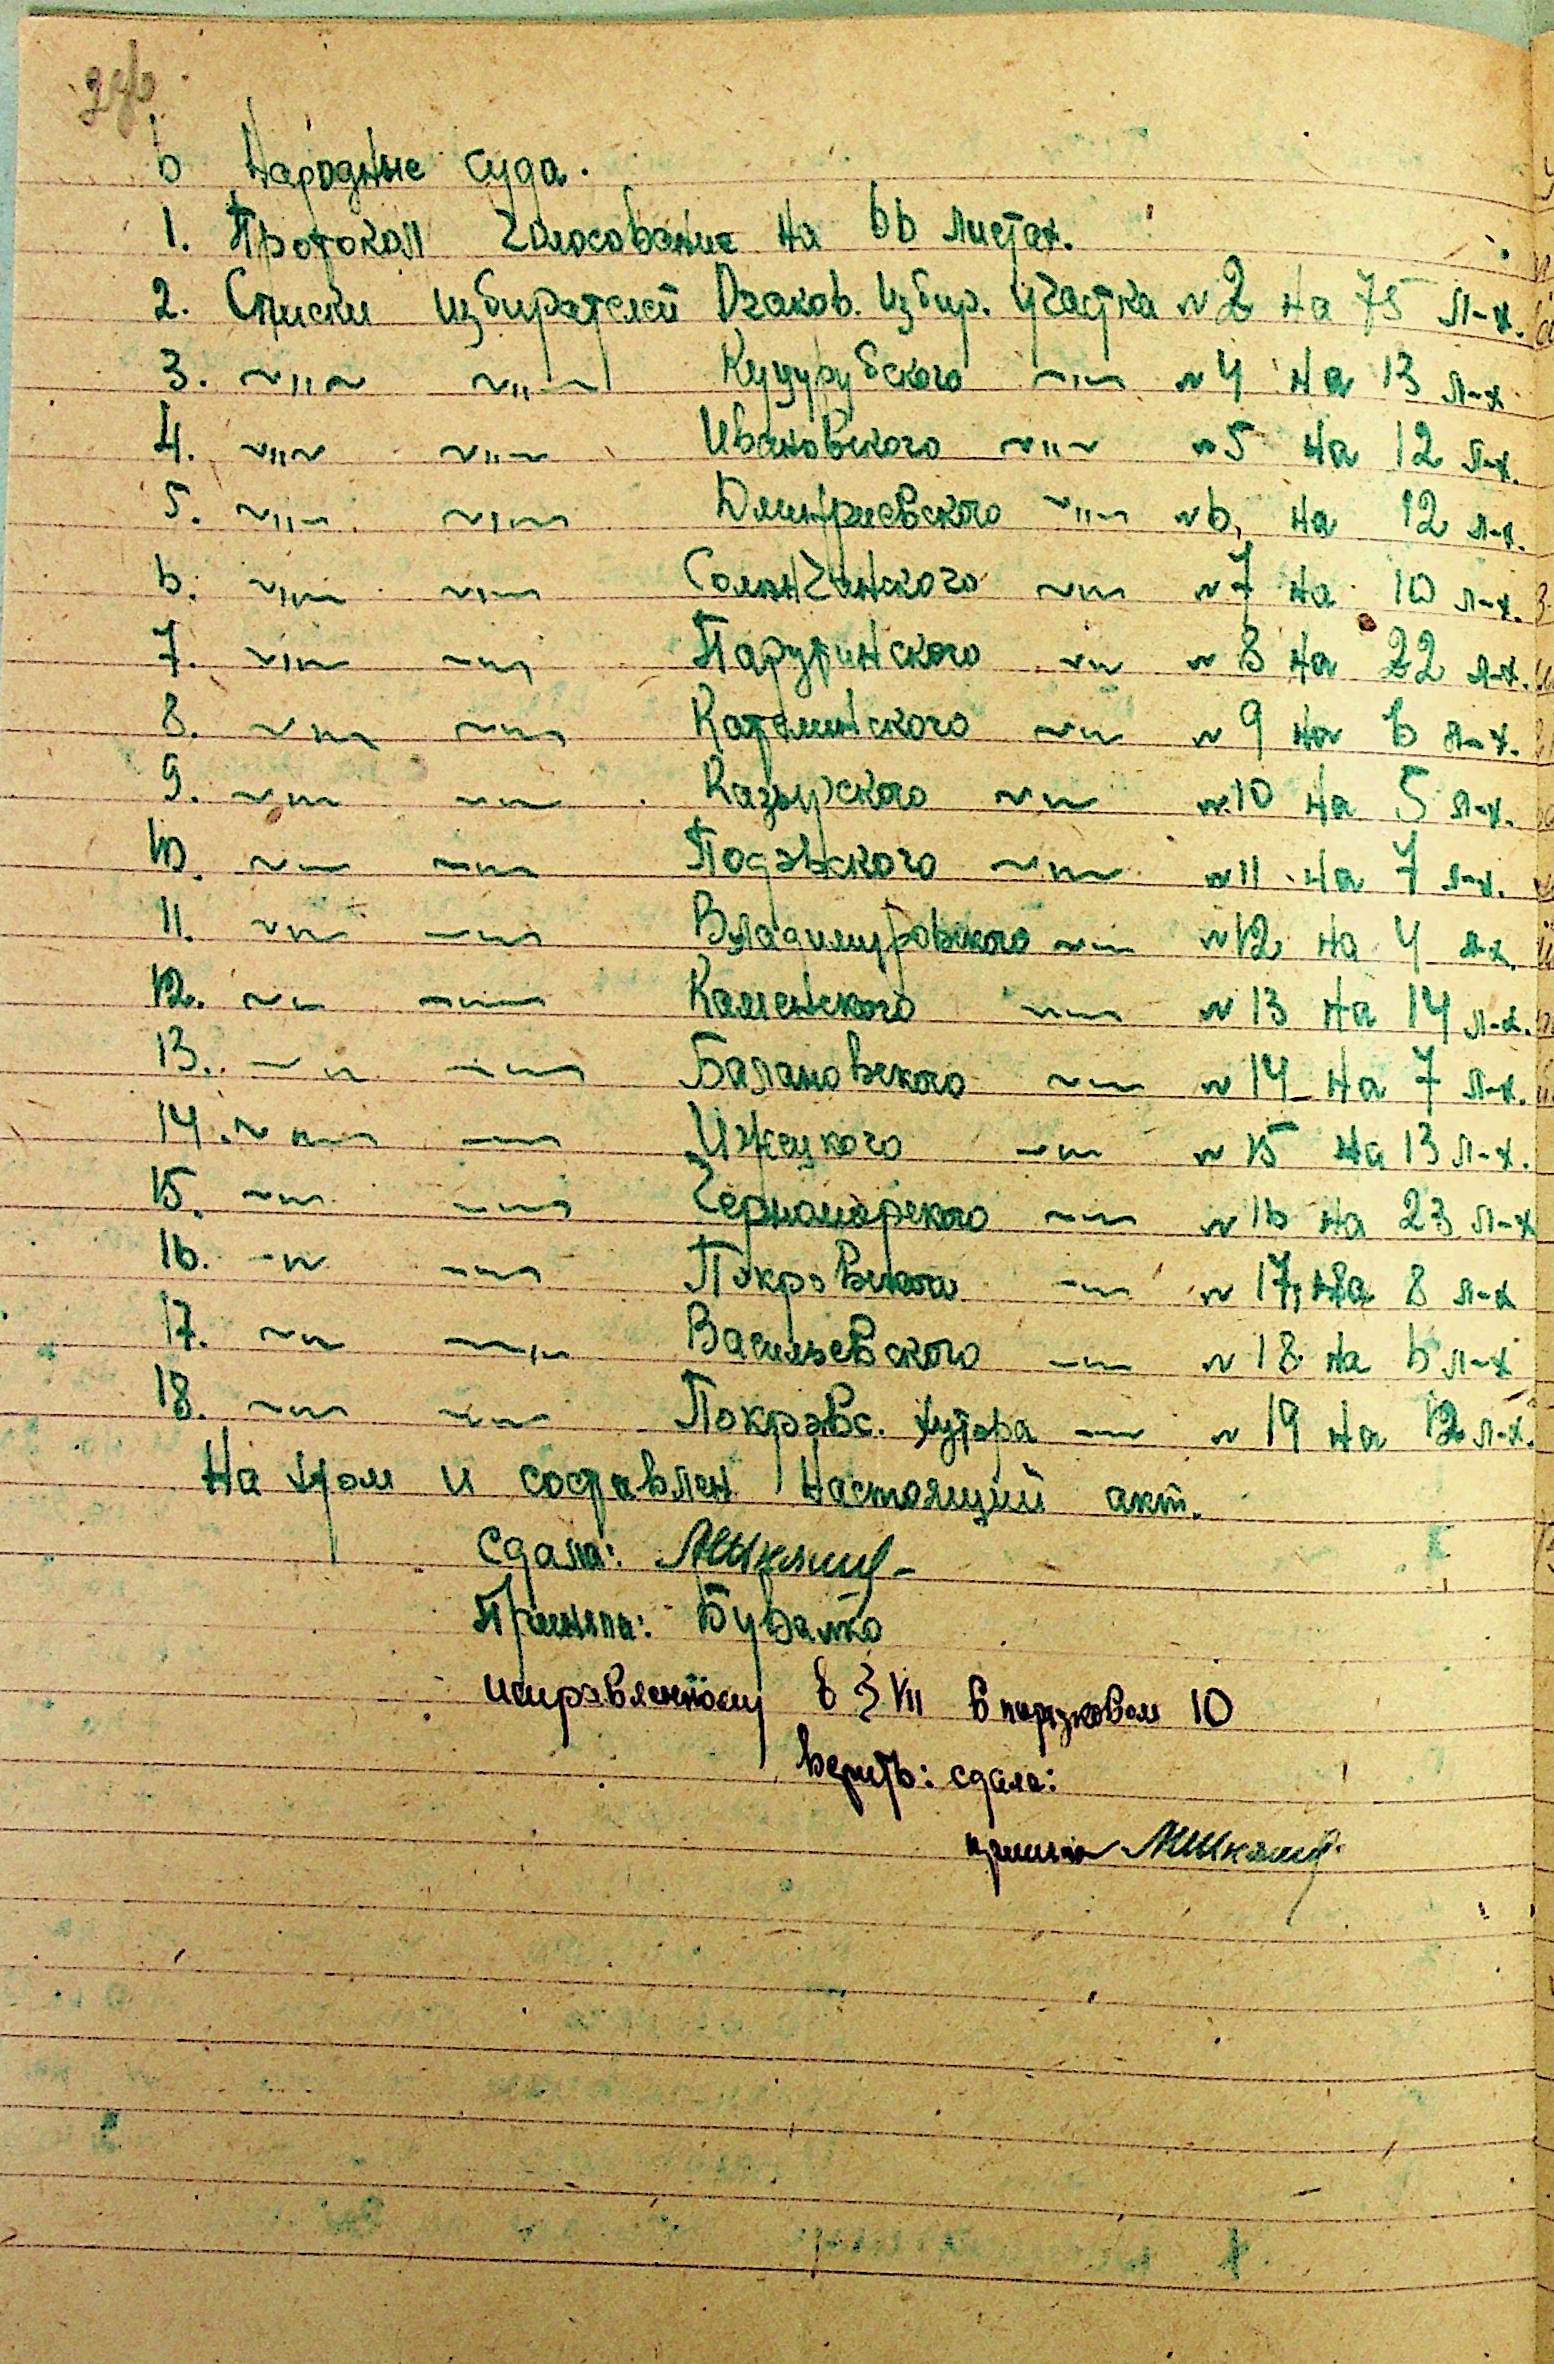 в Народные суда.
1. Протокол голосование на 66 листах.
2. Списки избирателей Очаков. избир. участка №2 на 75 л-х.
3. ~"~ ~"~ Куцурубского ~"~ №4 на 13 л-х
4. ~"~ ~"~ Ивановского ~"~ №5 на 12 л-х.
5. ~"~ ~"~ Дмитриевского ~"~ №6, на 12 л-х.
6. ~"~ ~"~ Солончанского ~"~ №7 на 10 л-х.
7. ~"~ ~"~ Парутинского ~"~ №8 на 22 л-х.
8. ~"~ ~"~ Каталинского ~"~ №9 на 6 л-х.
9. ~"~ ~"~ ~"~ №10 на 5 л-х.
10. ~"~ ~"~ ~"~ №11 на 7 л-х.
11. ~"~ ~"~ Владимировского ~"~ №12 на 4 л-х.
12. ~"~ ~"~ Каменского ~"~ №13 на 14 л-х.
13. ~"~ ~"~ Балановского ~"~ №14 на 7 л-х.
14. ~"~ ~"~ Ижецкого ~"~ №15 на 13 л-х.
15. ~"~ ~"~ Черноморского ~"~ №16 на 23 л-х
16. ~"~ ~"~ Покровского ~"~ №17, на 8 л-х
17. ~"~ ~"~ Васильевского ~"~ №18 на 6 л-х
18. ~"~ ~"~ Покровс. хутора ~"~ №19 на 12 л-х.
На чом и составлен настоящий акт.
Сдала:
Приняла: Бувалко
исправленному в § VII 10
верить: сдала:
приняла